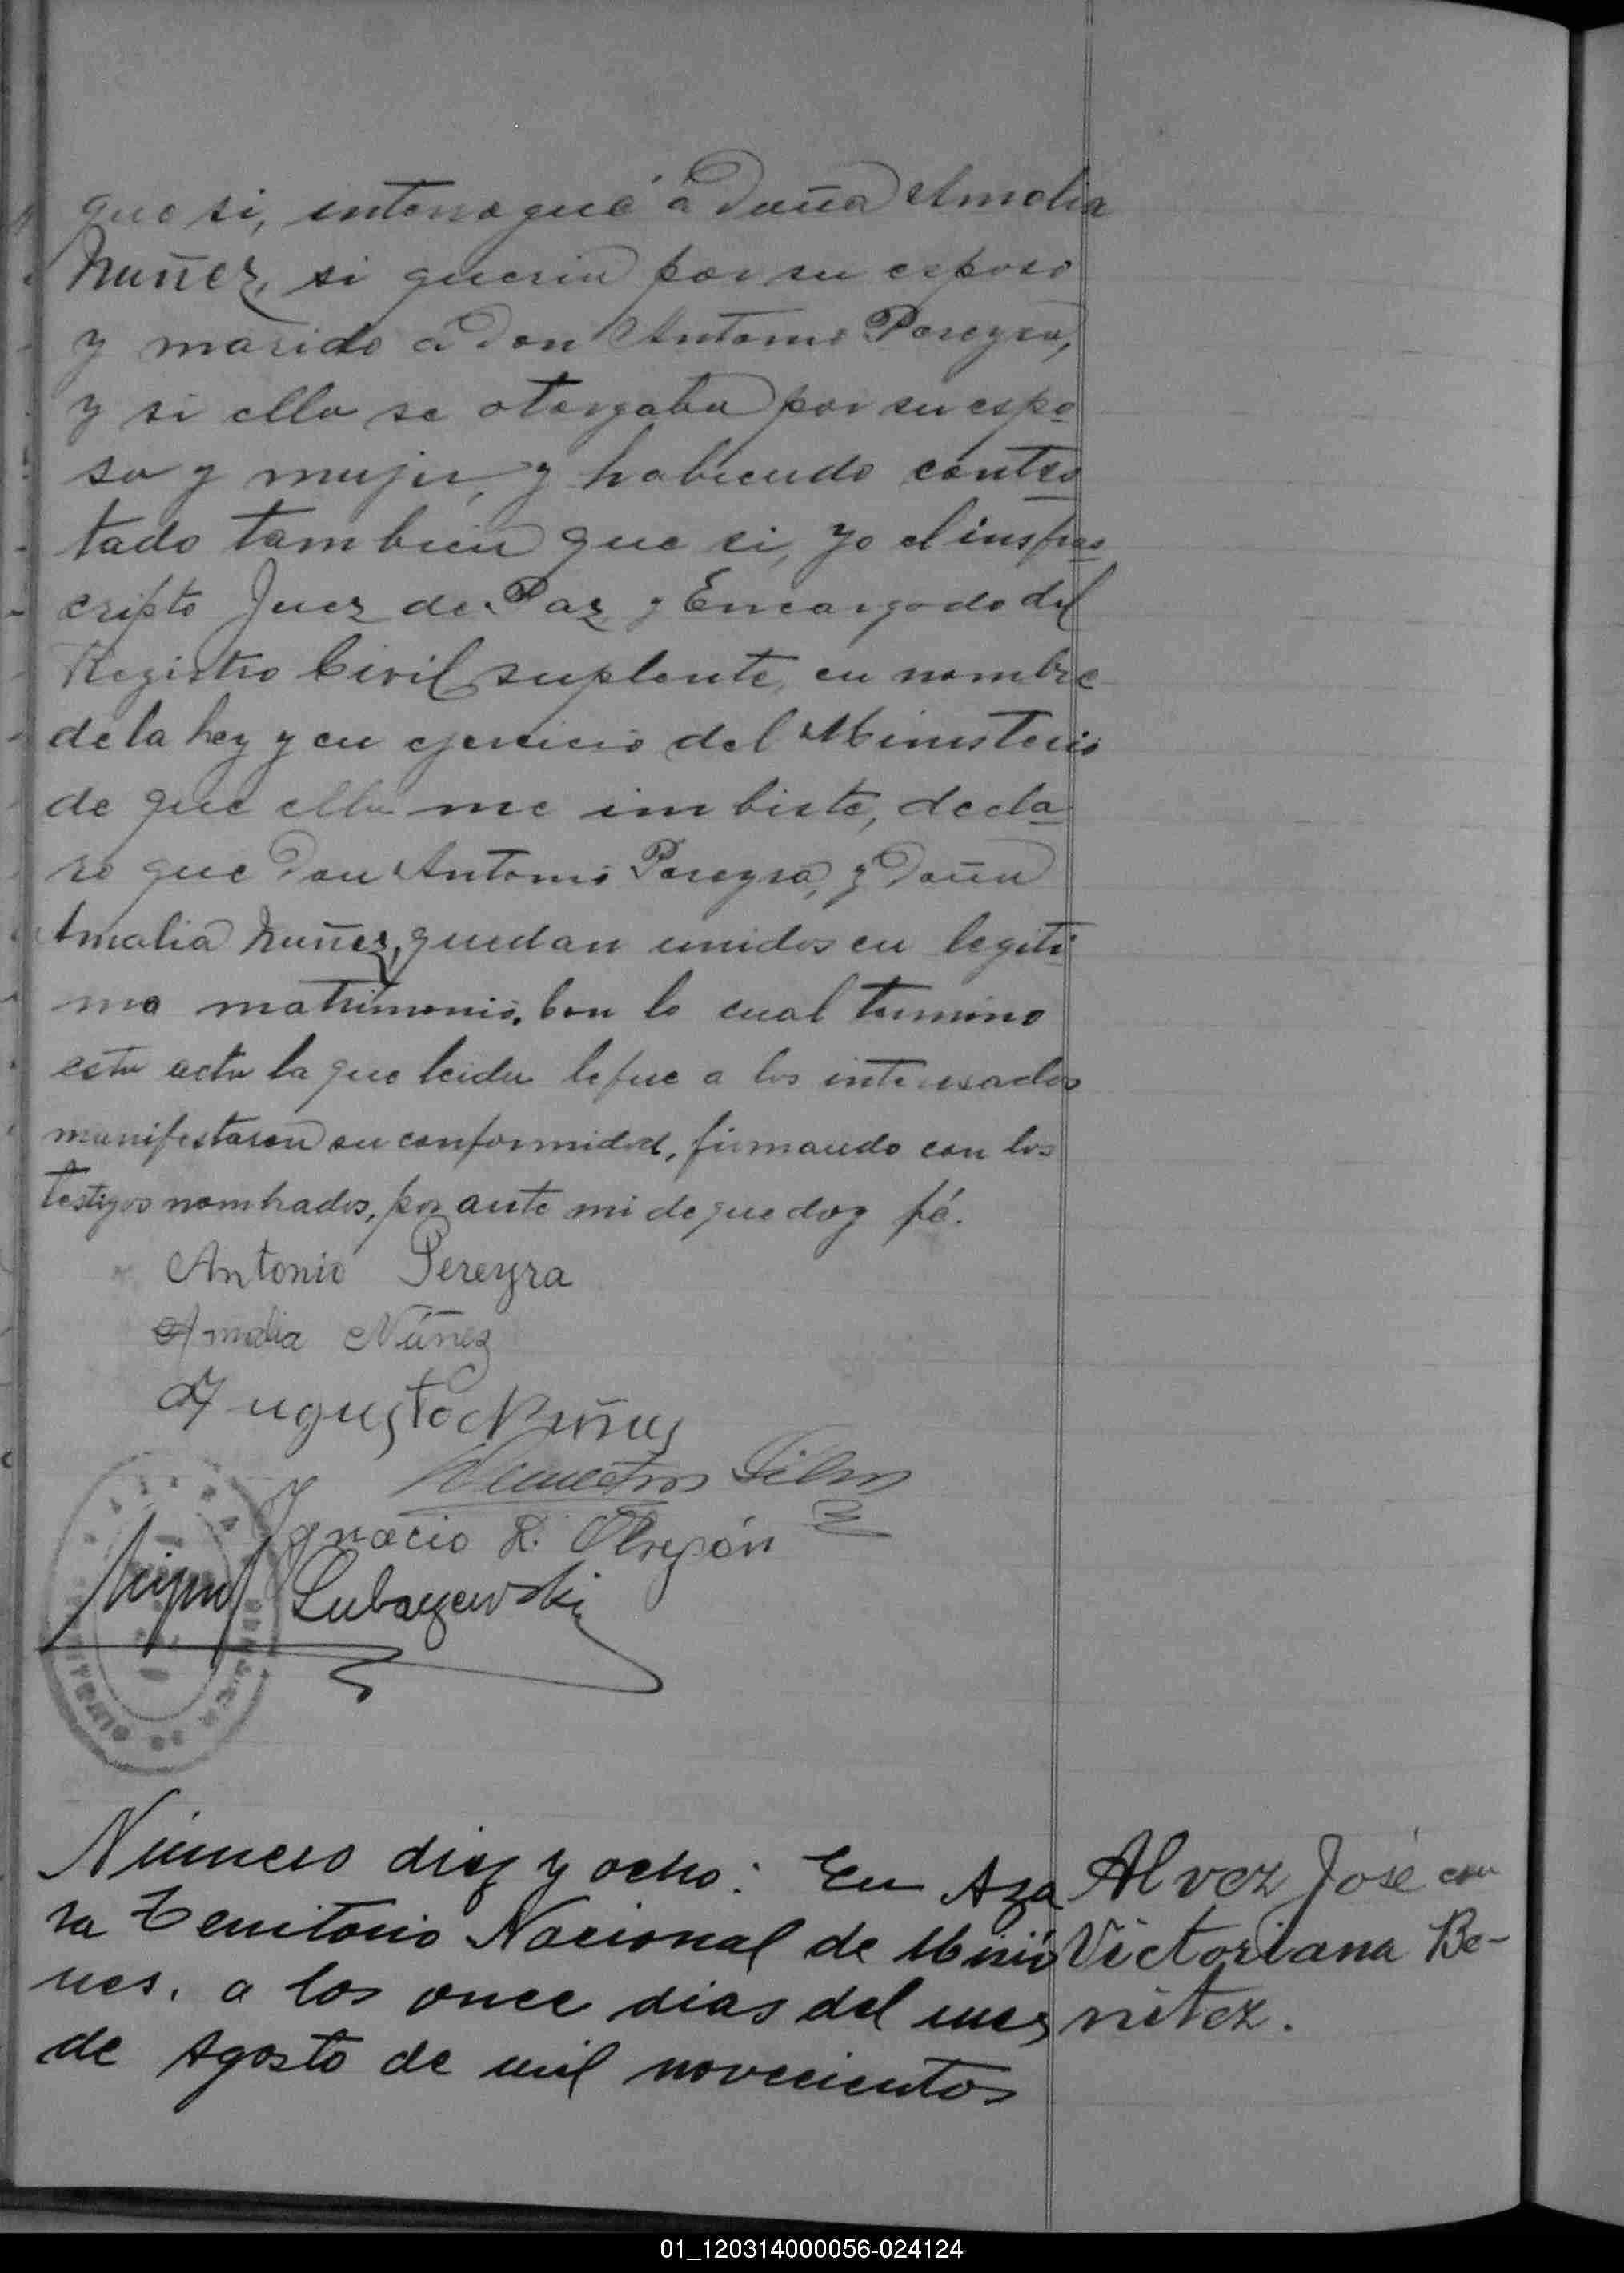 que si, interrogué á Doña Amalia
Nuñez, si queria por su esposo
y marido á Don Antonio Pereyra,
y si ella se otorgaba por su espo
sa y mujer, y habiendo contes
tado tambien que si, yo el insfras
cripto Juez de Paz y Encargado del
Registro Civil suplente, en nombre
de la Ley y en ejercicio del Ministerio
de que ella me imbiste, decla
ro que Don Antonio Pereyra, y Doña
Amalia Nuñez, quedan unidos en legiti
mo matrimonio. Con lo cual termino
esta acta la que leida le fue a los interesados
manifestaron su conformidad, firmando con los
testigos nombrados, por ante mi de que doy fé.
Antonio Pereyra
Amalia Núñez
Augusto Nuñes
Demetrio Silva
Ignacio R. Obregón
Miguel Lubazewski
Número diez y ocho: En Aza
ra Territorio Nacional de Misio
nes. a los once dias del mes
de Agosto de mil novecientos
Alvez José con
Victoriana Be-
nitez.
01_120314000056-024124